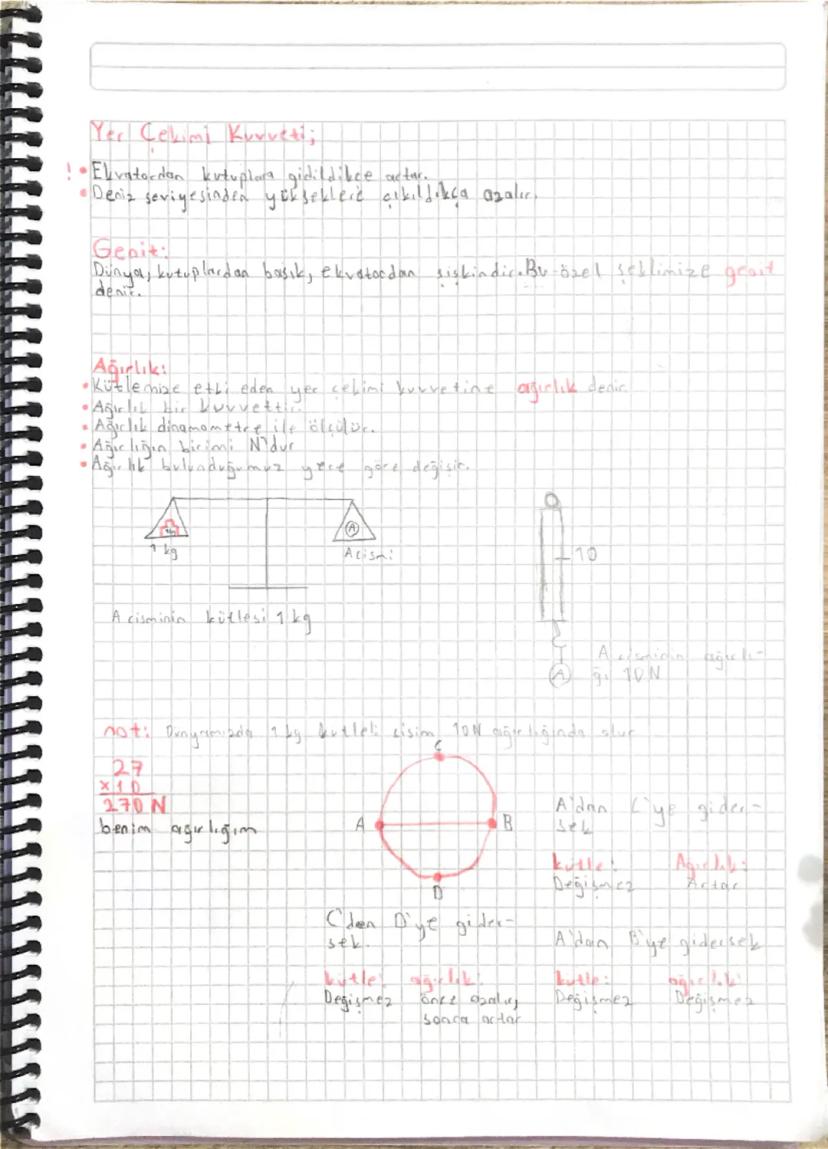 Yer Çekimi Kuvveti;
! • Ekvatordan kutuplara gidildikçe artar.
• Deniz seviyesinden yükseklere çıkıldıkça azalır.
Geoit:
Dünya, kutuplardan basık, ekvatordan şişkindir. Bu özel şeklimize geoit
denir.
Ağırlık:
• Kütlemize etki eden yer çekimi kuvvetine ağırlık denir.
• Ağırlık bir kuvvettir.
• Ağırlık dinamometre ile ölçülür.
• Ağırlığın birimi N'dur
• Ağırlık bulunduğumuz yere göre değişir.
A
1 kg
A cismi
10
A cisminin kütlesi 1 kg
A cisminin ağırlı-
A
ğı 10N
not: Dünyamızda 1 kg kütleli cisim 10N ağırlığında olur
C
27
x10
270 N
benim ağırlığım
A
B
D
A'dan C'ye gider-
sek
kütle: Ağırlık:
Değişmez Artar
C'den D'ye gider-
sek.
kütle: ağırlık:
Değişmez önce azalır,
sonra artar
A'dan B'ye gidersek
kütle: ağırlık:
Değişmez Değişmez